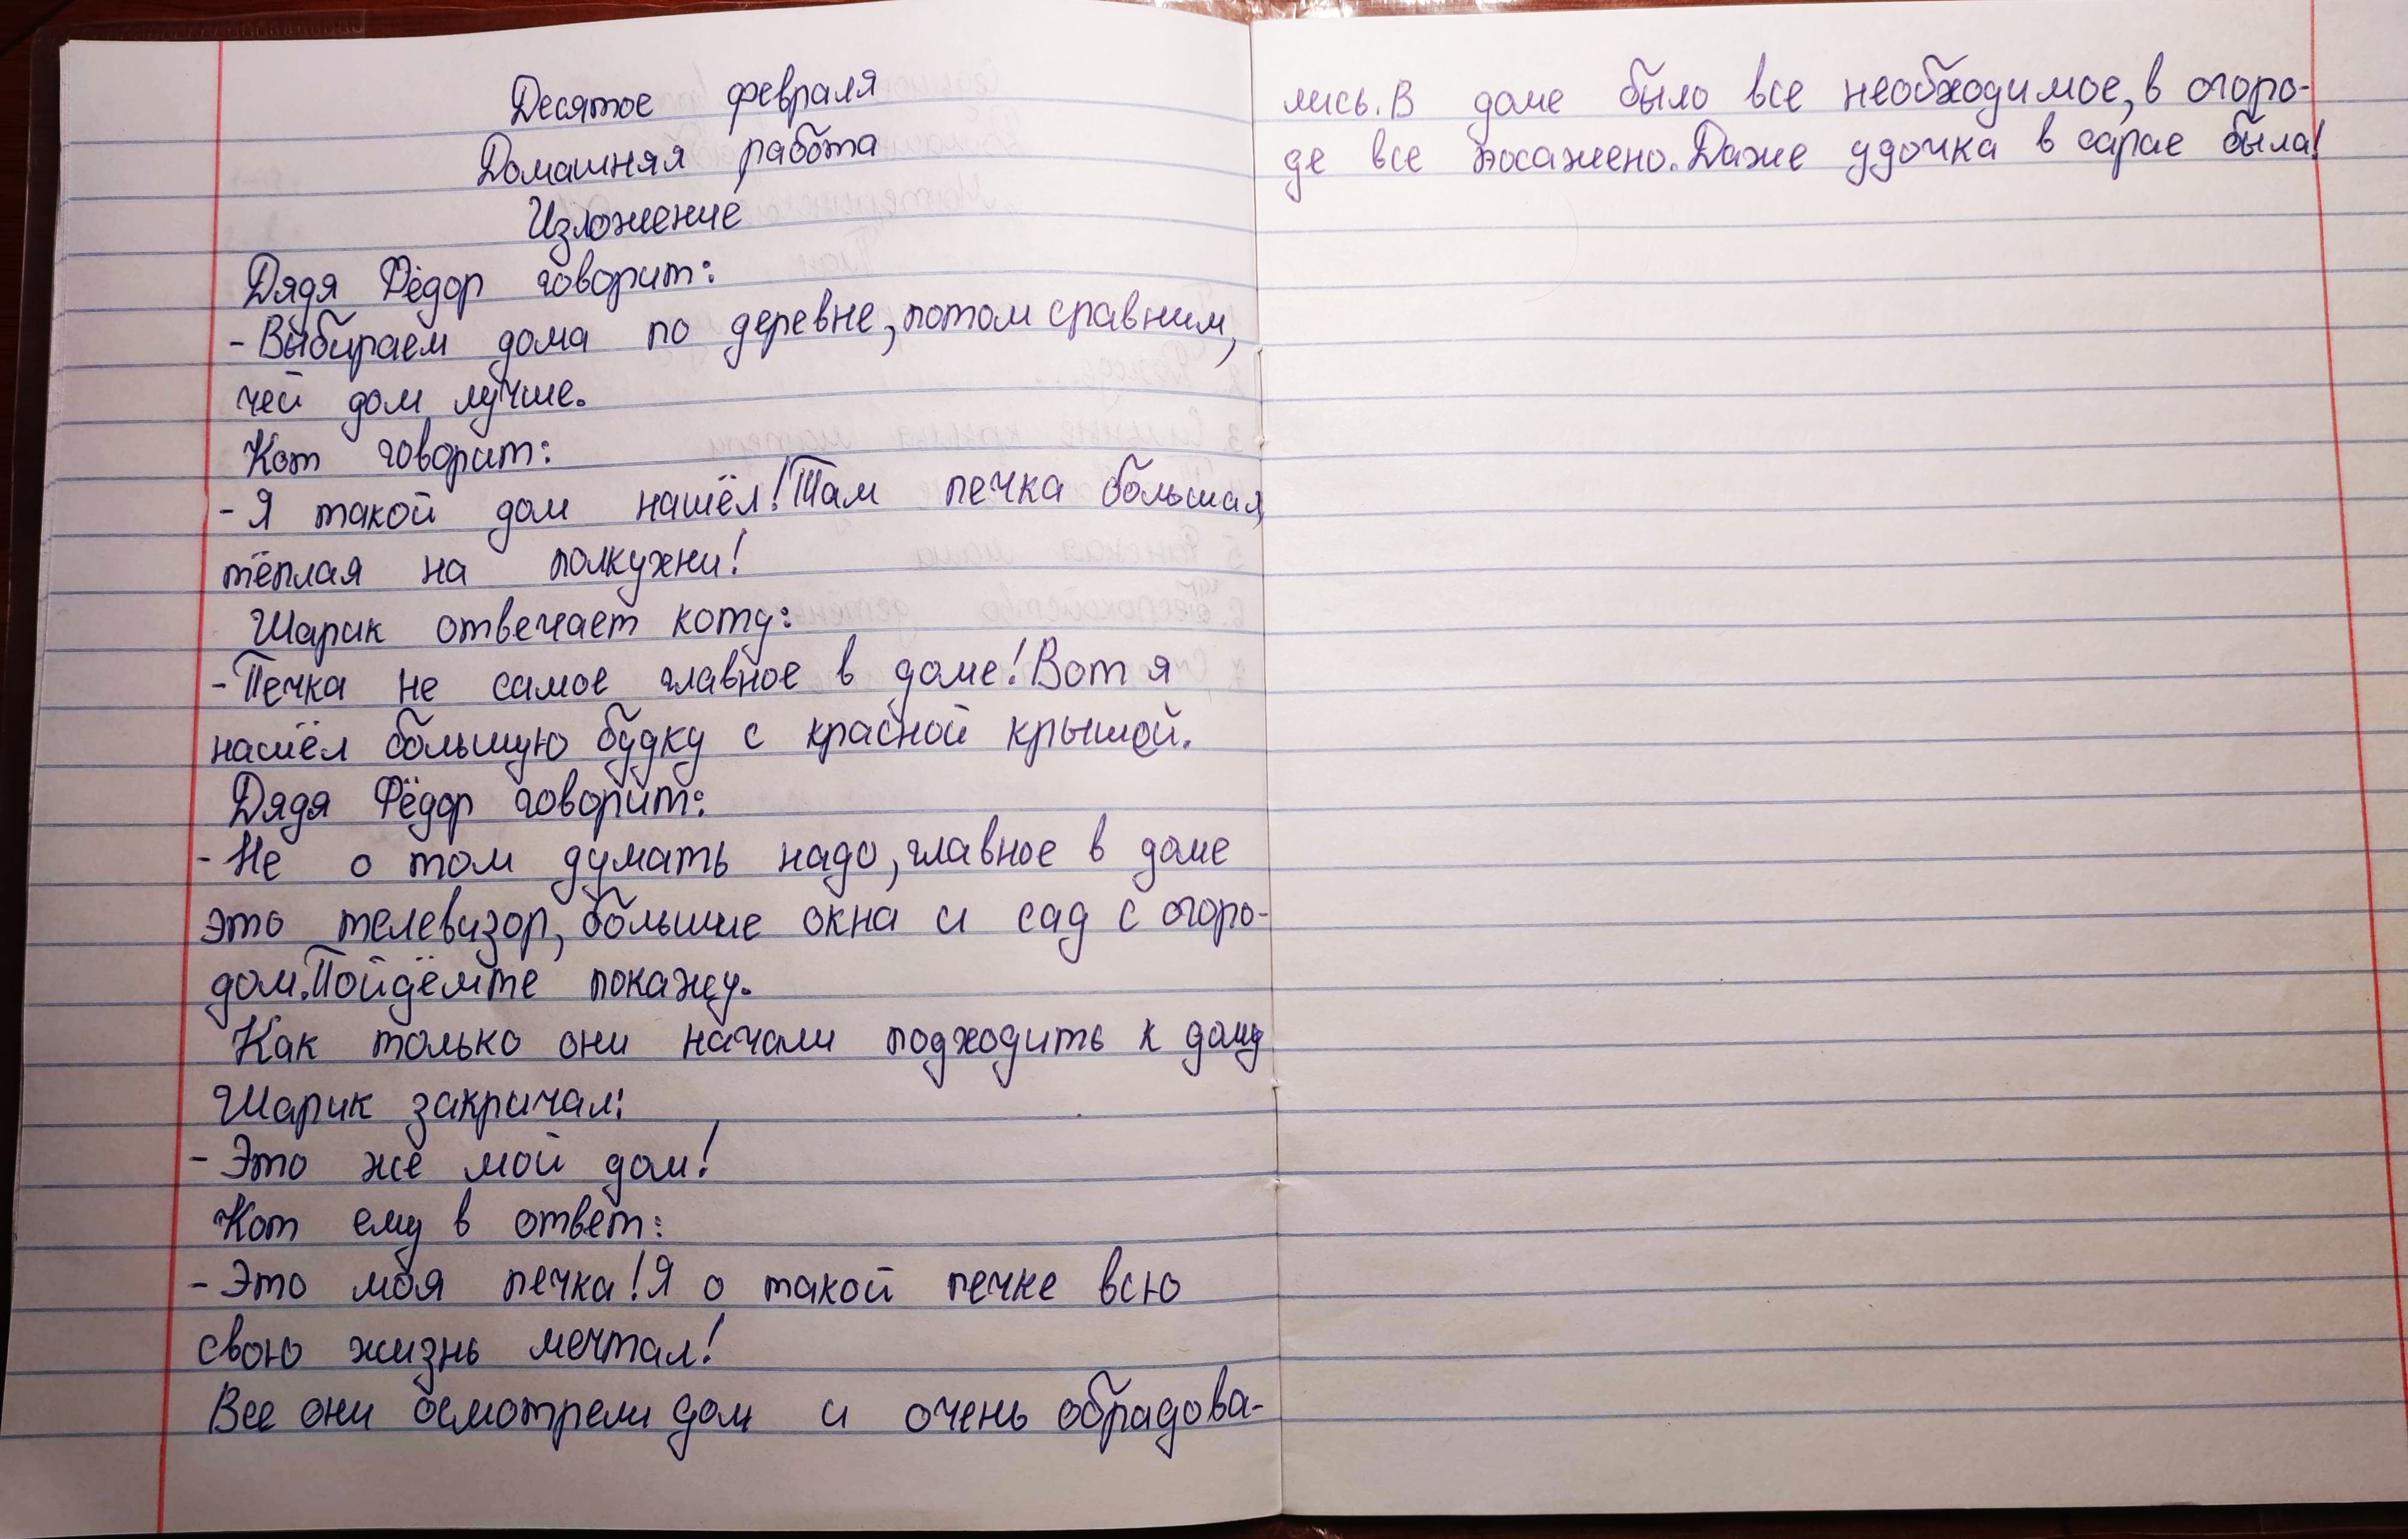 Десятое февраля
Домашняя работа
Изложение
Дядя Фёдор говорит:
- Выбираем дома по деревне, потом сравним,
чей дом лучше.
Кот говорит:
- Я такой дом нашёл! Там печка большая,
тёплая на полкухни!
Шарик отвечает коту:
- Печка не самое главное в доме! Вот я
нашёл большую будку с красной крышей.
Дядя Фёдор говорит:
- Не о том думать надо, главное в доме
это телевизор, большие окна и сад с огоро-
дом. Пойдёмте покажу.
Как только они начали подходить к дому
Шарик закричал:
- Это же мой дом!
Кот ему в ответ:
- Это моя печка! Я о такой печке всю
свою жизнь мечтал!
Все они осмотрели дом и очень обрадова-
лись. В доме было все необходимое, в огоро-
де все посажено. Даже удочка в сарае была!